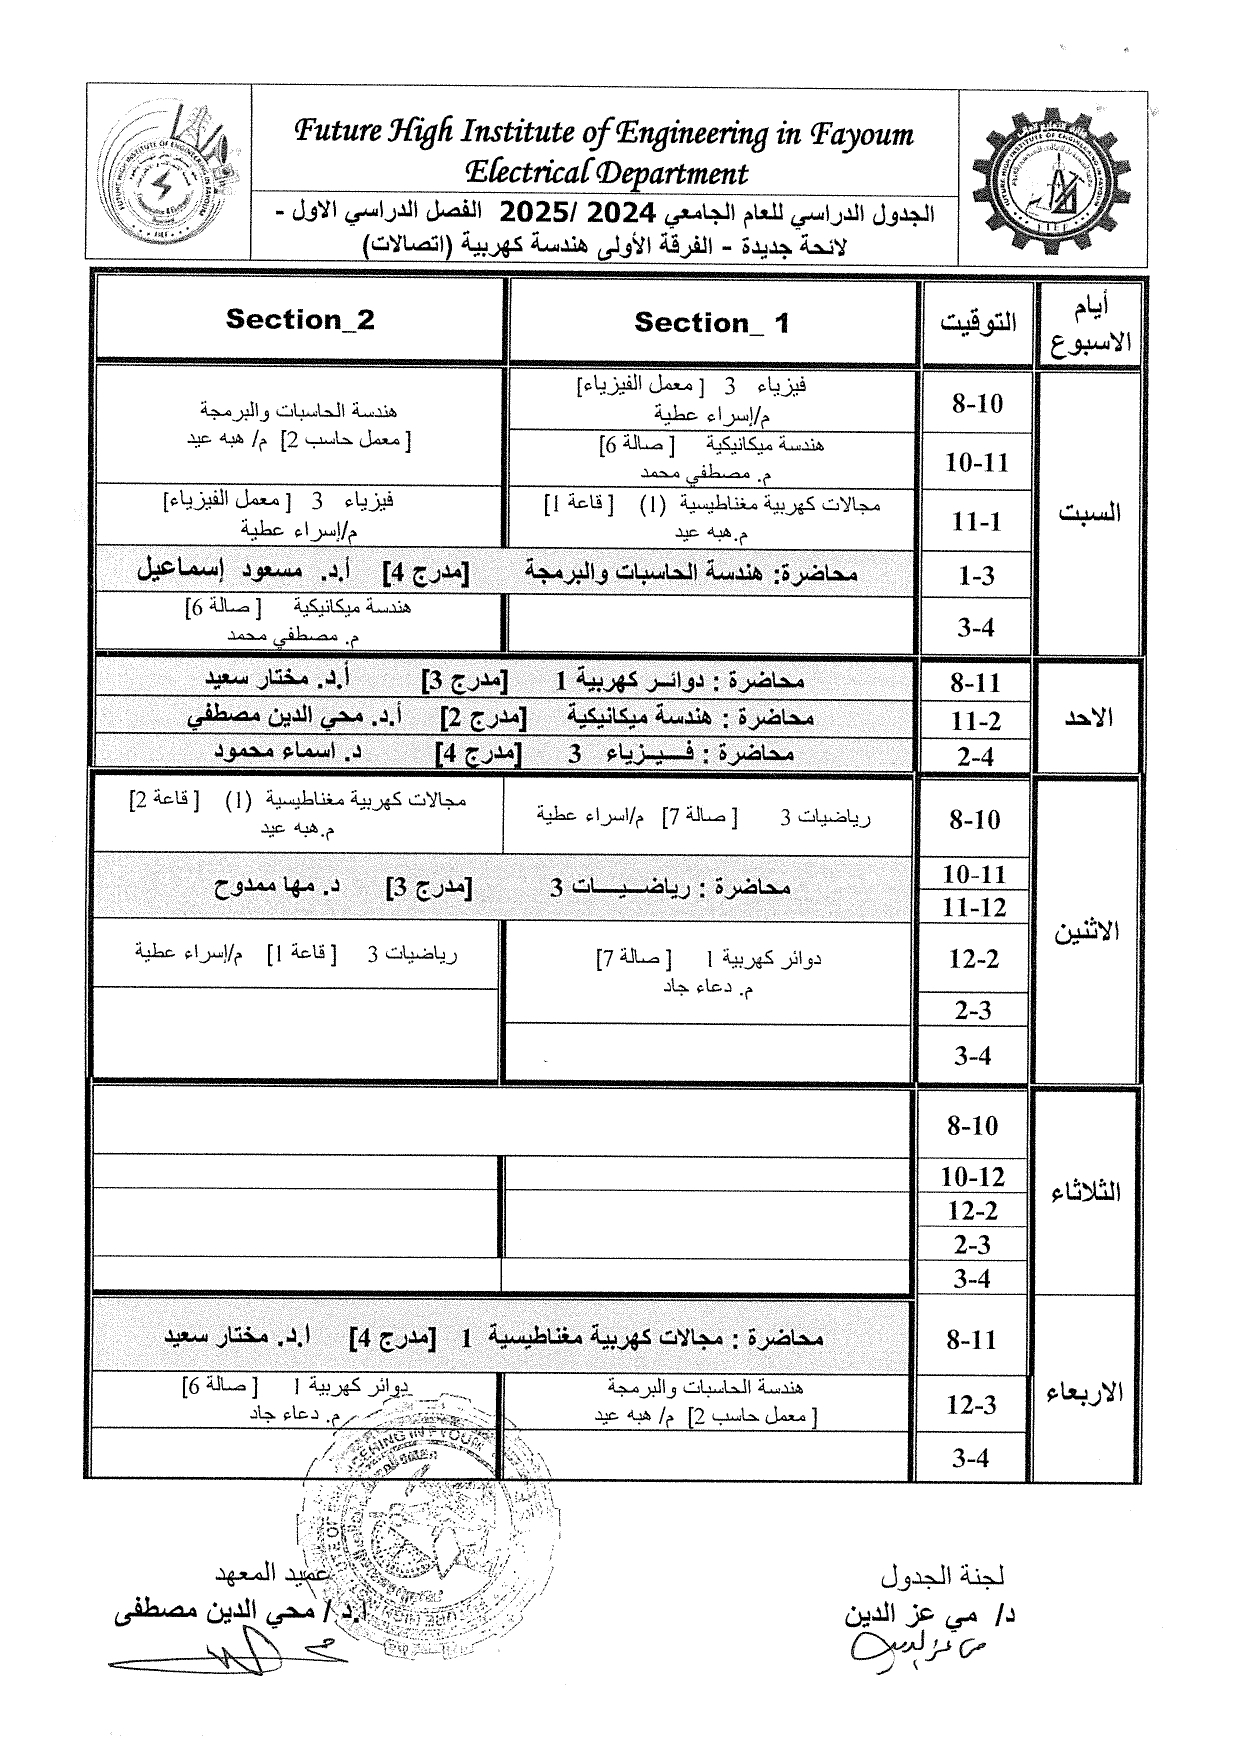 Future High Institute of Engineering in Fayoum
Electrical Department
الجدول الدراسي للعام الجامعي 2024 /2025 الفصل الدراسي الاول -
لائحة جديدة - الفرقة الأولى هندسة كهربية (اتصالات)
أيام الاسبوع
التوقيت
Section_ 1
Section_2
السبت
8-10
فيزياء 3 [معمل الفيزياء]
م/إسراء عطية
هندسة الحاسبات والبرمجة
[معمل حاسب 2] م/ هبه عيد
10-11
هندسة ميكانيكية [صالة 6]
م. مصطفي محمد
11-1
مجالات كهربية مغناطيسية (1) [قاعة 1]
م.هبه عيد
فيزياء 3 [معمل الفيزياء]
م/إسراء عطية
1-3
محاضرة: هندسة الحاسبات والبرمجة [مدرج 4] أ.د. مسعود إسماعيل
3-4
هندسة ميكانيكية [صالة 6]
م. مصطفي محمد
الاحد
8-11
محاضرة : دوائر كهربية 1 [مدرج 3] أ.د. مختار سعيد
11-2
محاضرة : هندسة ميكانيكية [مدرج 2] أ.د. محي الدين مصطفي
2-4
محاضرة : فـيـزياء 3 [مدرج 4] د. اسماء محمود
الاثنين
8-10
رياضيات 3 [صالة 7] م/اسراء عطية
مجالات كهربية مغناطيسية (1) [قاعة 2]
م.هبه عيد
10-11
11-12
محاضرة : رياضـيـات 3 [مدرج 3] د. مها ممدوح
12-2
دوائر كهربية 1 [صالة 7]
م. دعاء جاد
رياضيات 3 [قاعة 1] م/إسراء عطية
2-3
3-4
الثلاثاء
8-10
10-12
12-2
2-3
3-4
الاربعاء
8-11
محاضرة : مجالات كهربية مغناطيسية 1 [مدرج 4] ا.د. مختار سعيد
12-3
هندسة الحاسبات والبرمجة
[معمل حاسب 2] م/ هبه عيد
دوائر كهربية 1 [صالة 6]
م. دعاء جاد
3-4
لجنة الجدول
د/ مي عز الدين
مي عز الدين
عميد المعهد
ا.د/ محي الدين مصطفى